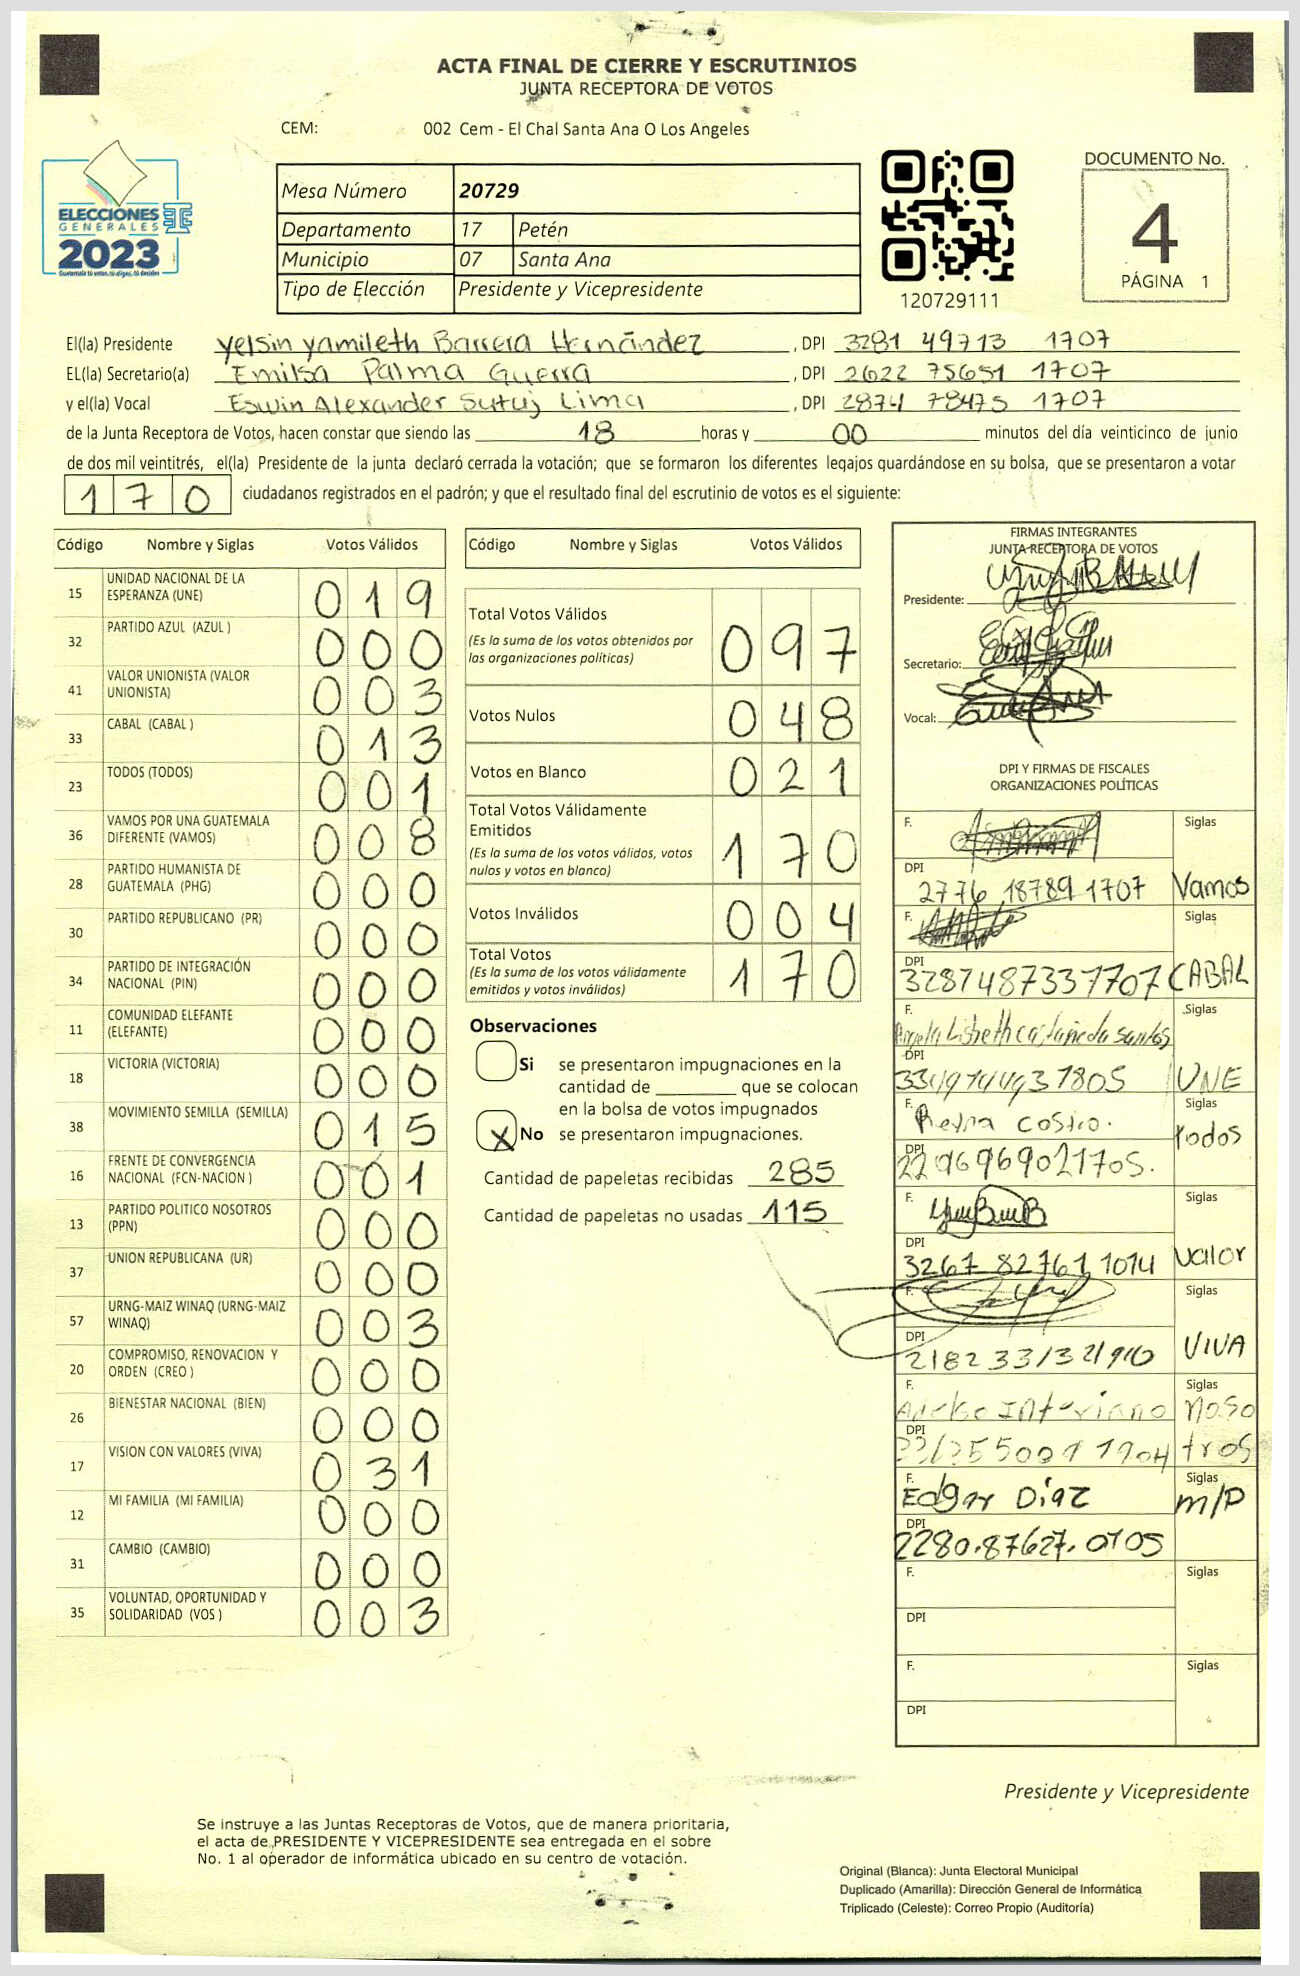 ACTA FINAL DE CIERRE Y ESCRUTINIOS
JUNTA RECEPTORA DE VOTOS
CEM: 002 Cem - El Chal Santa Ana O Los Angeles
ELECCIONES
GENERALES
2023
Mesa Número 20729
Departamento 17 Petén
Municipio 07 Santa Ana
Tipo de Elección Presidente y Vicepresidente
120729111
DOCUMENTO No.
4
PÁGINA 1
El(la) Presidente Yelsin Yamileth Barrera Hernández, DPI 3281 49713 1707
EL(la) Secretario(a) Emilsa Palma Guerra, DPI 2622 75651 1707
y el(la) Vocal Eswin Alexander Sutuj Lima, DPI 2874 78475 1707
de la Junta Receptora de Votos, hacen constar que siendo las 18 horas y 00 minutos del día veinticinco de junio
de dos mil veintitrés, el(la) Presidente de la junta declaró cerrada la votación; que se formaron los diferentes legajos guardándose en su bolsa, que se presentaron a votar
170 ciudadanos registrados en el padrón; y que el resultado final del escrutinio de votos es el siguiente:
Código Nombre y Siglas Votos Válidos
15 UNIDAD NACIONAL DE LA ESPERANZA (UNE) 019
32 PARTIDO AZUL (AZUL ) 000
41 VALOR UNIONISTA (VALOR UNIONISTA) 003
33 CABAL (CABAL ) 013
23 TODOS (TODOS) 001
36 VAMOS POR UNA GUATEMALA DIFERENTE (VAMOS) 008
28 PARTIDO HUMANISTA DE GUATEMALA (PHG) 000
30 PARTIDO REPUBLICANO (PR) 000
34 PARTIDO DE INTEGRACIÓN NACIONAL (PIN) 000
11 COMUNIDAD ELEFANTE (ELEFANTE) 000
18 VICTORIA (VICTORIA) 000
38 MOVIMIENTO SEMILLA (SEMILLA) 015
16 FRENTE DE CONVERGENCIA NACIONAL (FCN-NACION ) 001
13 PARTIDO POLITICO NOSOTROS (PPN) 000
37 UNION REPUBLICANA (UR) 000
57 URNG-MAIZ WINAQ (URNG-MAIZ WINAQ) 003
20 COMPROMISO, RENOVACION Y ORDEN (CREO ) 000
26 BIENESTAR NACIONAL (BIEN) 000
17 VISION CON VALORES (VIVA) 031
12 MI FAMILIA (MI FAMILIA) 000
31 CAMBIO (CAMBIO) 000
35 VOLUNTAD, OPORTUNIDAD Y SOLIDARIDAD (VOS ) 003
Código Nombre y Siglas Votos Válidos
Total Votos Válidos 097
(Es la suma de los votos obtenidos por
las organizaciones políticas)
Votos Nulos 048
Votos en Blanco 021
Total Votos Válidamente
Emitidos 170
(Es la suma de los votos válidos, votos
nulos y votos en blanco)
Votos Inválidos 004
Total Votos 170
(Es la suma de los votos válidamente
emitidos y votos inválidos)
Observaciones
Si se presentaron impugnaciones en la
cantidad de ________ que se colocan
en la bolsa de votos impugnados
X No se presentaron impugnaciones.
Cantidad de papeletas recibidas 285
Cantidad de papeletas no usadas 115
FIRMAS INTEGRANTES
JUNTA RECEPTORA DE VOTOS
Presidente:
Secretario:
Vocal:
DPI Y FIRMAS DE FISCALES
ORGANIZACIONES POLÍTICAS
F. Siglas
DPI 2776 18789 1707 Vamos
F. Siglas
DPI 3287487337707 CABAL
F. Angela Lisbeth Castañeda Santos Siglas
DPI UNE
F. Reyna Castro. Siglas
DPI 2296969021705. todos
F. Siglas
DPI 3267 82761 1014 Valor
F. Siglas
DPI VIVA
F. Interiano Siglas
DPI Nosotros
F. Edgar Diaz Siglas
DPI 2280.87627.0705 M/P
F. Siglas
DPI
F. Siglas
DPI
Presidente y Vicepresidente
Se instruye a las Juntas Receptoras de Votos, que de manera prioritaria,
el acta de PRESIDENTE Y VICEPRESIDENTE sea entregada en el sobre
No. 1 al operador de informática ubicado en su centro de votación.
Original (Blanca): Junta Electoral Municipal
Duplicado (Amarilla): Dirección General de Informática
Triplicado (Celeste): Correo Propio (Auditoría)